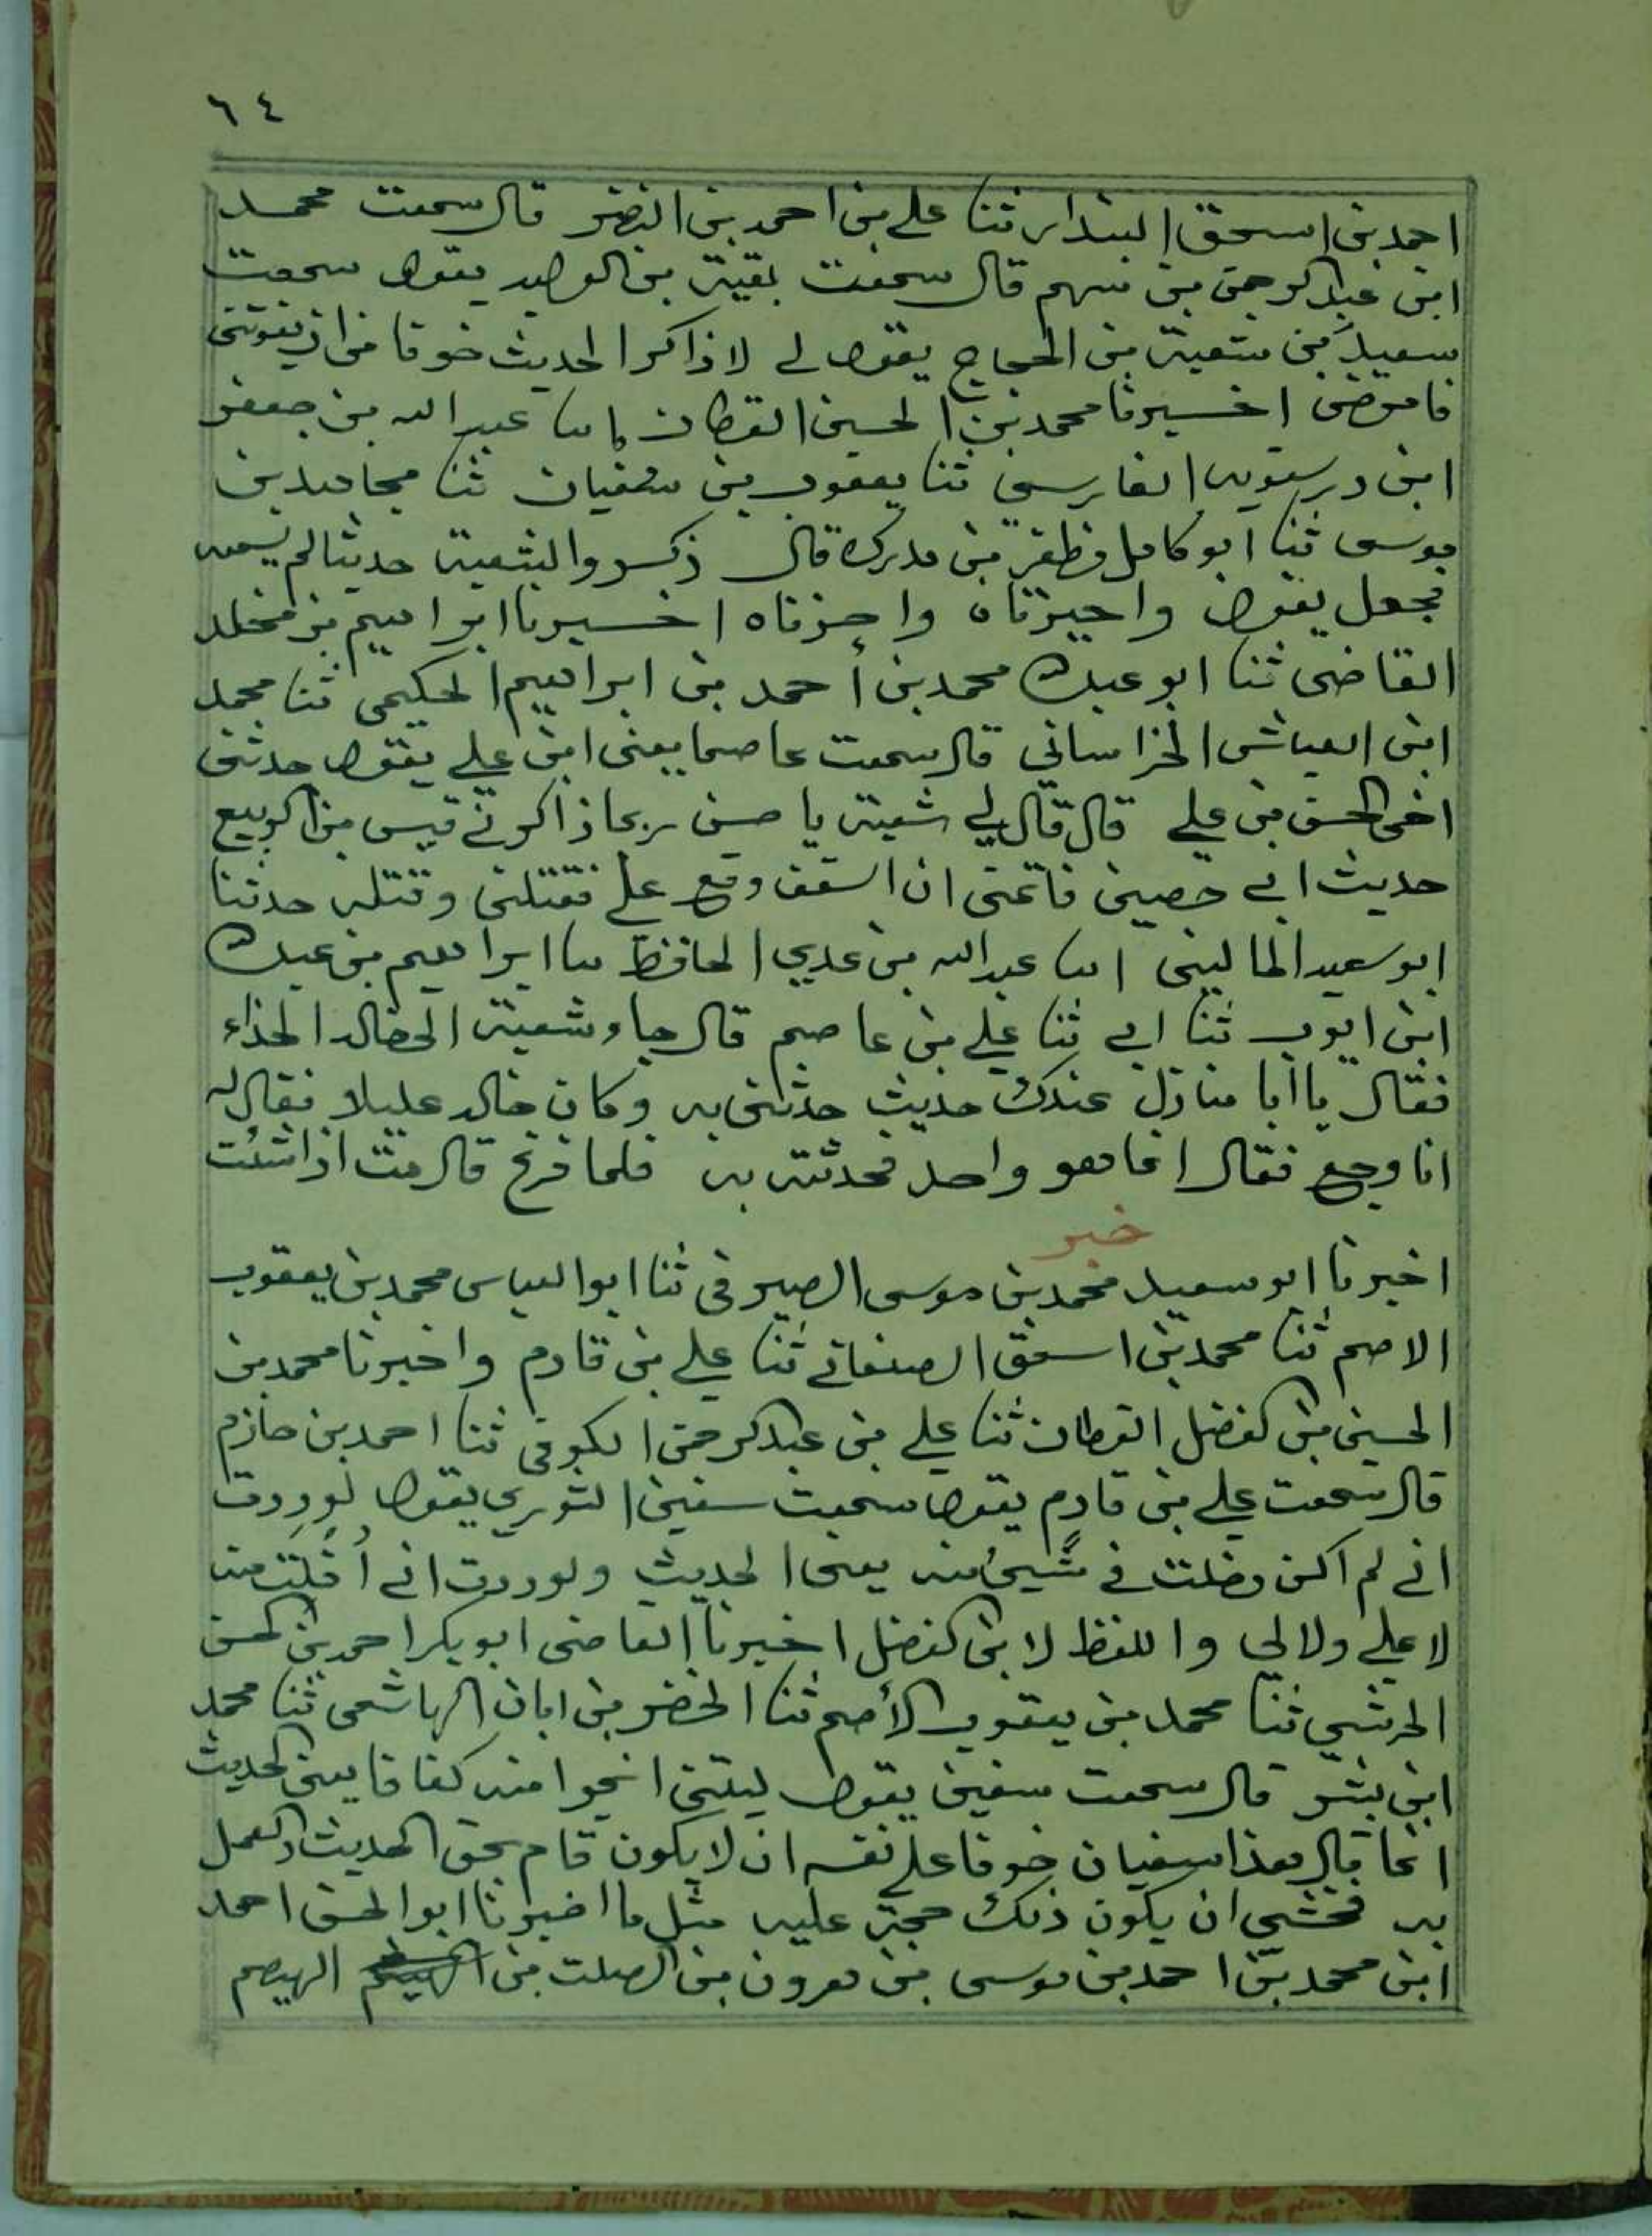 ٦٤
احمد بن اسحق البندار ثنا علي بن احمد بن النضر قال سمعت محمد
ابن عبد الرحمن بن سهم قال سمعت بقية بن الوليد يقول سمعت
شعبة بن الحجاج يقول لي لاذاكر الحديث خوفا من ان يفوتني
فامرض اخبرنا محمد بن الحسين القطان انا عبد الله بن جعفر
ابن درستويه الفارسي ثنا يعقوب بن سفيان ثنا مجاهد بن
موسى ثنا ابو كامل مظفر بن مدرك قال ذكروا لشعبة حديثا لم يسمعه
فجعل يقول واحزناه واحزناه اخبرنا ابراهيم بن مخلد
القاضي ثنا ابو عبدالله محمد بن أحمد بن ابراهيم الحكيمي ثنا محمد
ابن العباش الخراساني قال سمعت عاصما يعني ابن علي يقول حدثني
اخي الحسن بن علي قال قال لي شعبة يا حسن ربما ذاكرني قيس بن الربيع
حديث ابي حصين فاتمنى ان السقف وقع علي فقتلني وقتله حدثنا
ابو سعيد الماليني انا عبد الله بن عدي الحافظ نا ابراهيم بن عبدالله
ابن ايوب ثنا ابي ثنا علي بن عاصم قال جاء شعبة الى خالد الحذاء
فقال يا أبا منازل عندك حديث حدثني به وكان خالد عليلا فقال له
انا وجع فقال انما هو واحد فحدثته به فلما فرغ قال مت اذا شئت
خبر
اخبرنا ابو سعيد محمد بن موسى الصيرفي ثنا ابو العباس محمد بن يعقوب
الاصم ثنا محمد بن اسحق الصغاني ثنا علي بن قادم واخبرنا محمد بن
الحسين بن الفضل القطان ثنا علي بن عبد الرحمن الكوفي ثنا احمد بن حازم
قال سمعت علي بن قادم يقول سمعت سفين الثوري يقول لوددت
اني لم اكن دخلت في شيئ منه يعني الحديث ولوددت اني أفلت منه
لا علي ولا لي واللفظ لابن الفضل اخبرنا القاضي ابو بكر احمد بن الحسن
الحرشي ثنا محمد بن يعقوب الأصم ثنا الخضر بن ابان الهاشمي ثنا محمد
ابن بشر قال سمعت سفين يقول ليتني انجوا منه كفافا يعني الحديث
انما قال هذا سفيان خوفا على نفسه ان لا يكون قام بحق الحديث والعمل
به فخشي ان يكون ذلك حجة عليه مثل ما اخبرنا ابو الحسن احمد
ابن محمد بن احمد بن موسى بن هرون بن الصلت بن الهيثم الهيصم